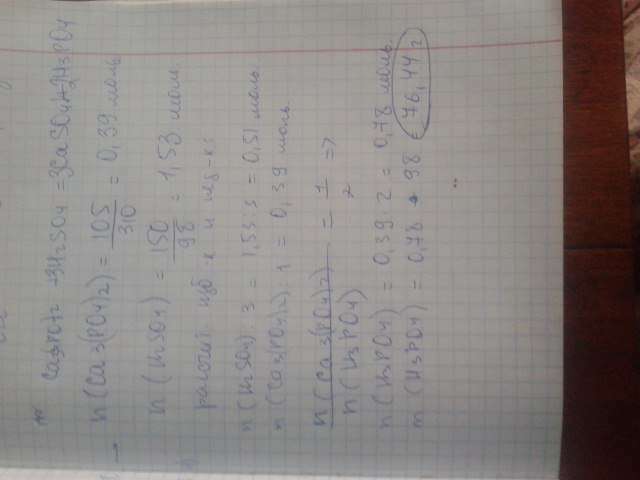 Ca3(PO4)2 + 3H2SO4 = 3CaSO4 + 2H3PO4
n (Ca3(PO4)2) = 105/310 = 0,39 моль
n (H2SO4) = 150/98 = 1,53 моль.
расчёт изб-к и нед-к:
n (H2SO4) : 3 = 1,53 : 3 = 0,51 моль
n (Ca3(PO4)2) : 1 = 0,39 моль
n (Ca3(PO4)2) / n (H3PO4) = 1/2 =>
n (H3PO4) = 0,39 · 2 = 0,78 моль.
m (H3PO4) = 0,78 · 98 = 76,44 г